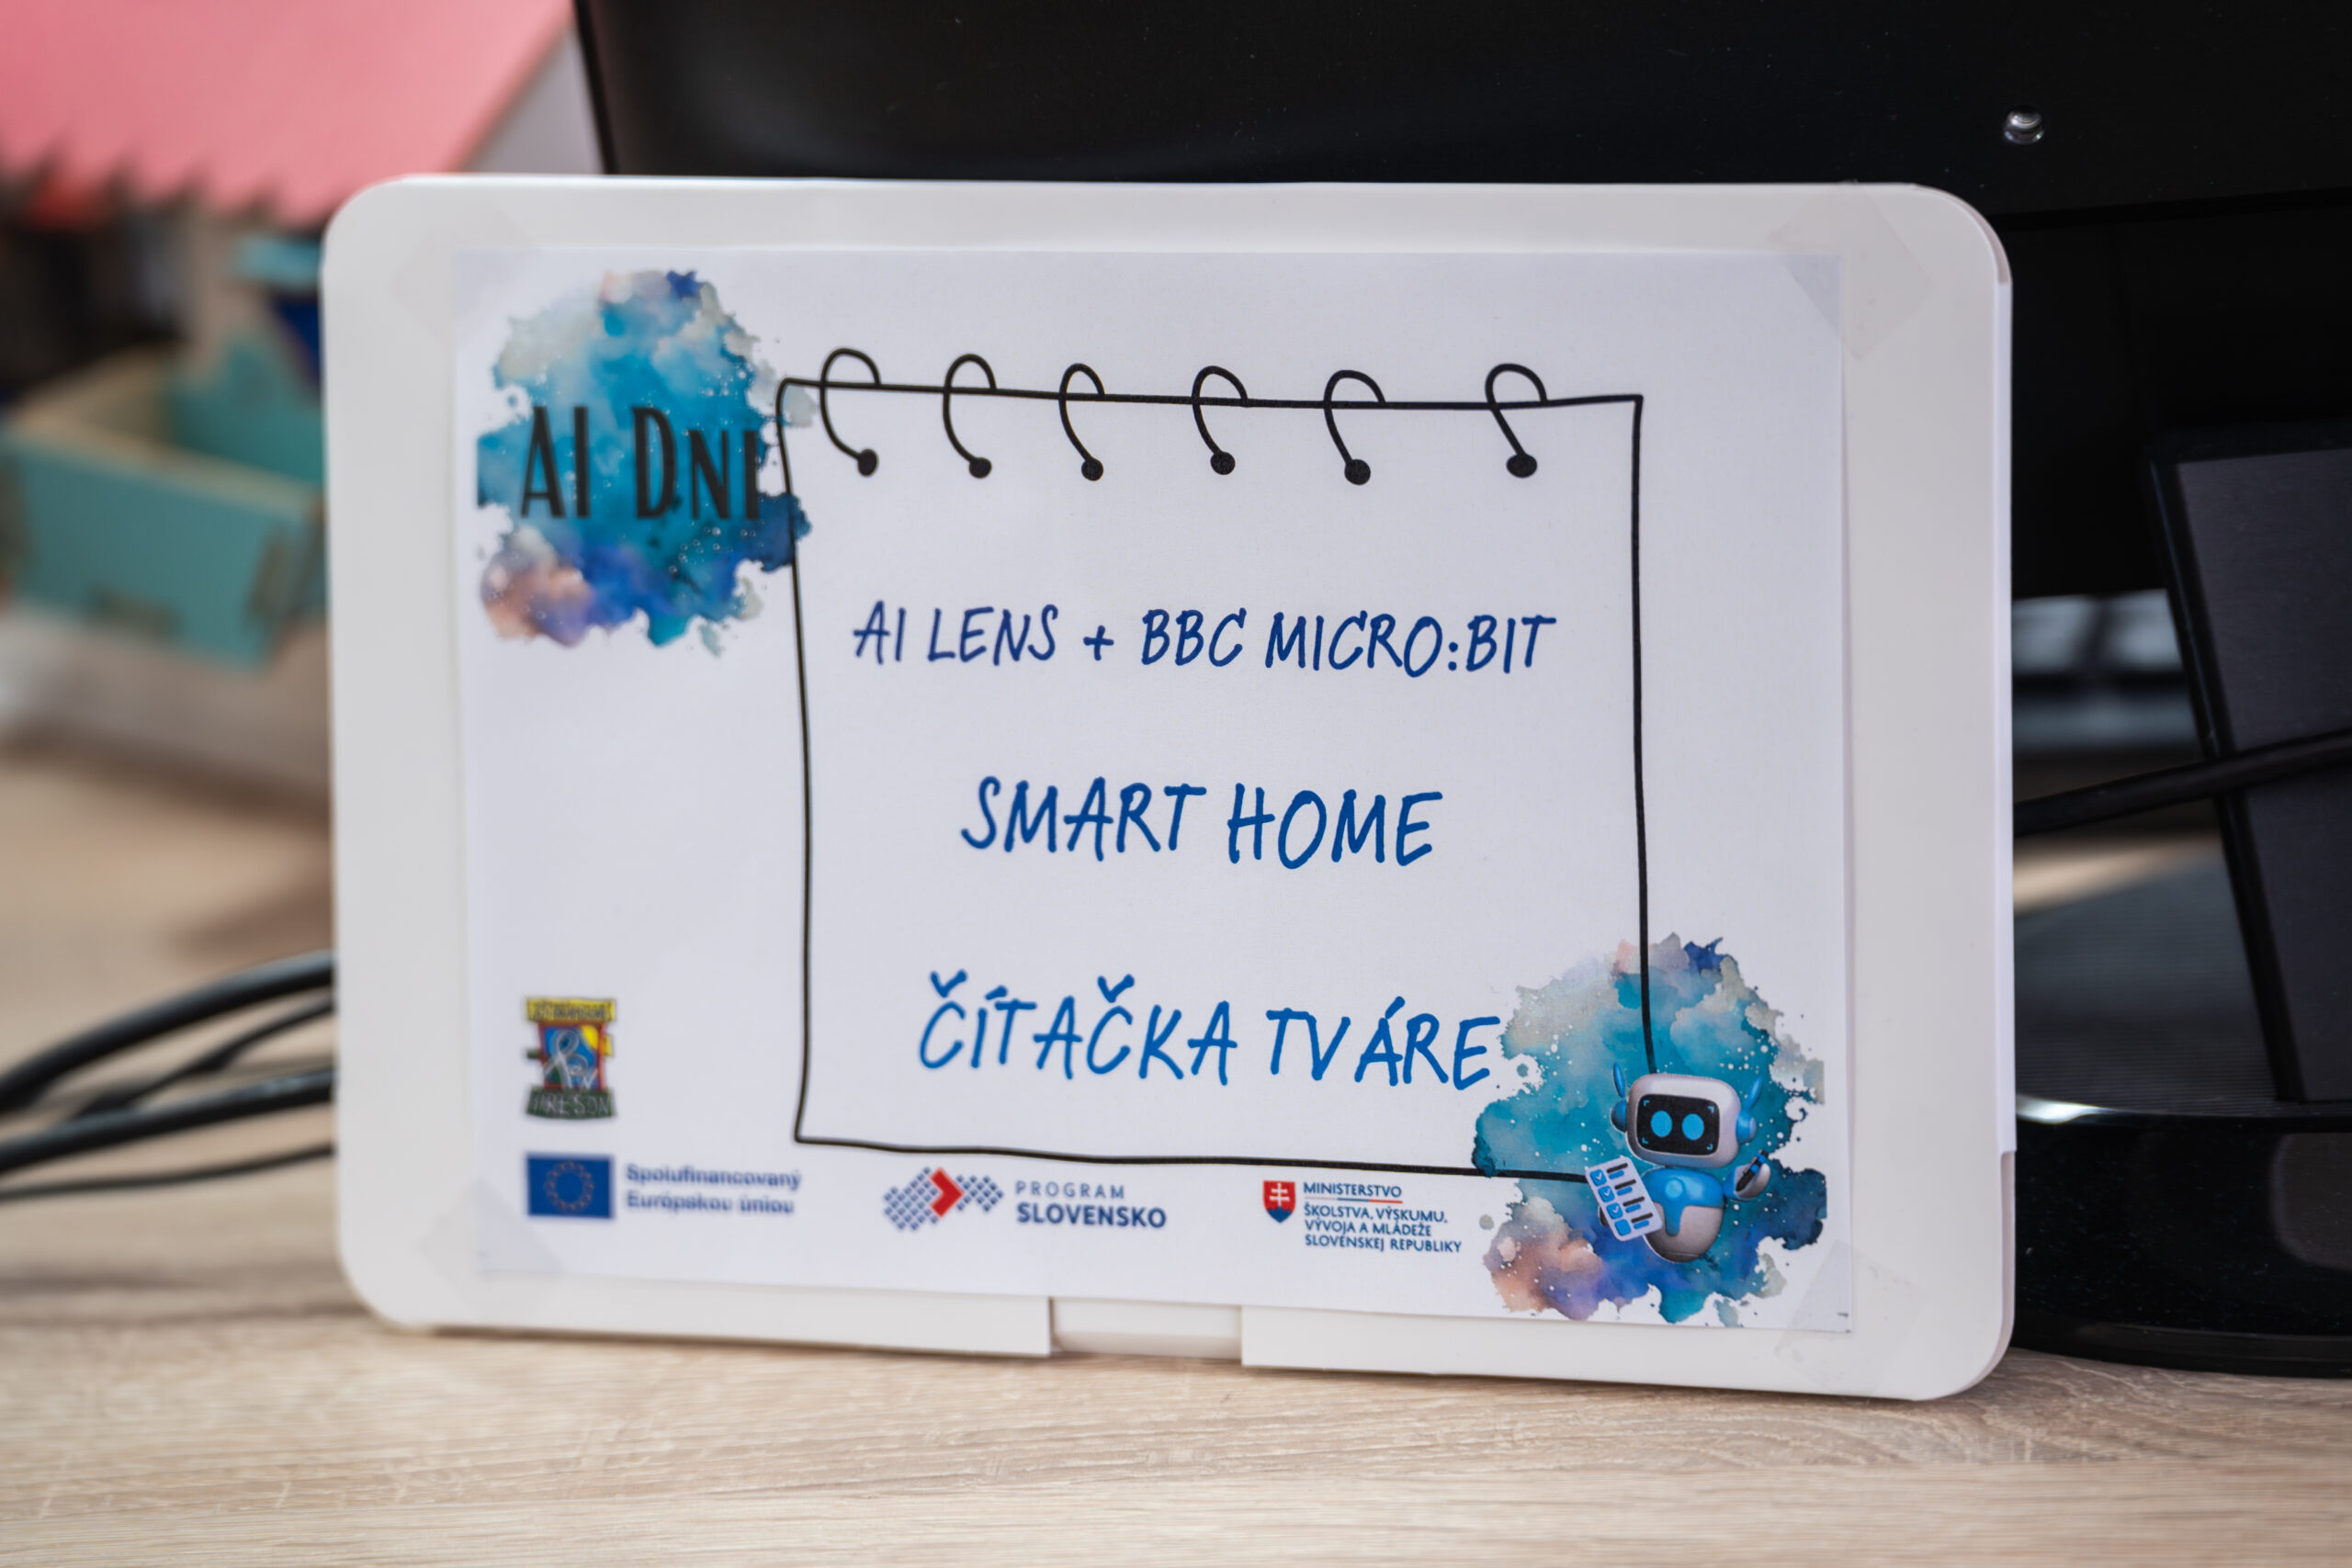 AI DNI
AI LENS + BBC MICRO:BIT
SMART HOME
ČÍTAČKA TVÁRE
Spolufinancovaný
Európskou úniou
PROGRAM
SLOVENSKO
MINISTERSTVO
ŠKOLSTVA, VÝSKUMU,
VÝVOJA A MLÁDEŽE
SLOVENSKEJ REPUBLIKY